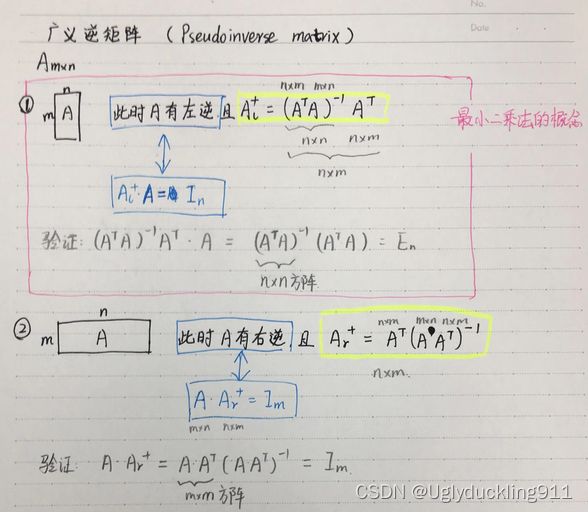 No.
Date
广义逆矩阵 (Pseudoinverse matrix)
Am×n
① m n A 此时A有左逆 且 Aₗ⁺ = (AᵀA)⁻¹ Aᵀ
n×m m×n
n×n n×m
n×m
最小二乘法的概念
Aₗ⁺·A = Iₙ
验证: (AᵀA)⁻¹Aᵀ · A = (AᵀA)⁻¹ (AᵀA) = Eₙ
n×n 方阵
② m n A 此时A有右逆, 且 Aᵣ⁺ = Aᵀ(A Aᵀ)⁻¹
n×m m×n n×m
n×m.
A · Aᵣ⁺ = Iₘ
m×n n×m
验证: A · Aᵣ⁺ = A·Aᵀ(AAᵀ)⁻¹ = Iₘ.
m×m 方阵
CSDN @Uglyduckling911